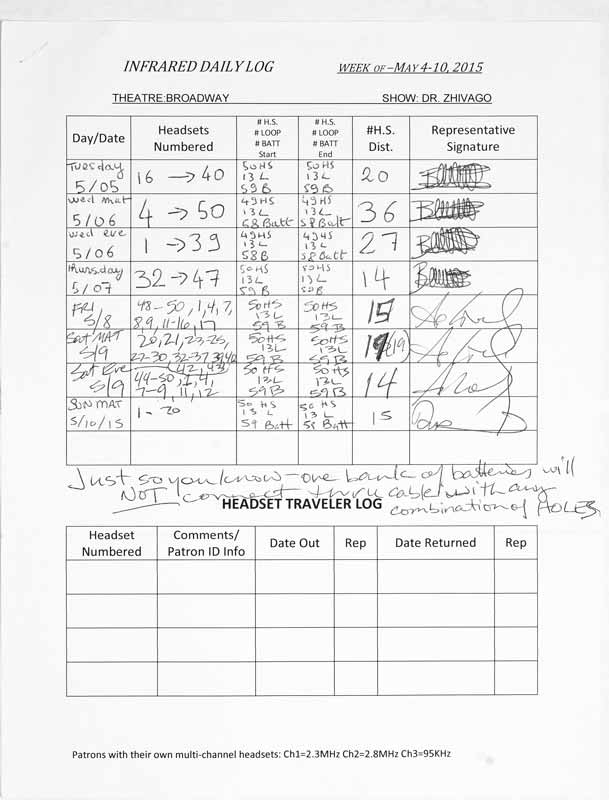 INFRARED DAILY LOG WEEK OF –MAY 4-10, 2015
THEATRE:BROADWAY SHOW: DR. ZHIVAGO
Day/Date Headsets Numbered # H.S. # LOOP # BATT Start # H.S. # LOOP # BATT End #H.S. Dist. Representative Signature
Tuesday 5/05 16 → 40 50 HS 13 L 59 B 50 HS 13 L 59 B 20
Wed mat 5/06 4 → 50 49 HS 13 L 58 Batt 49 HS 13 L 58 Batt 36
Wed eve 5/06 1 → 39 49 HS 13 L 58 B 49 HS 13 L 58 Batt 27
Thursday 5/07 32 → 47 50 HS 13 L 59 B 50 HS 13 L 14
FRI 5/8 48-50, 1,4,7, 8,9,11-16,17 50 HS 13 L 59 B 50 HS 13 L 59 B 15
Sat MAT 5/9 20,21,23-25, 27-30, 32-37 39,40 42, 43 50 HS 13 L 59 B 50 HS 13 L 59 B 19 (19)
Sat Eve 5/9 44-50, 1, 4, 7-9, 11, 12 50 HS 13 L 59 B 50 HS 13 L 59 B 14
SUN MAT 5/10/15 1 - 20 50 HS 13 L 59 Batt 50 HS 13 L 59 Batt 15
Just so you know - one bank of batteries will
NOT connect thru cable with any
combination of HOLES
HEADSET TRAVELER LOG
Headset Numbered Comments/ Patron ID Info Date Out Rep Date Returned Rep
Patrons with their own multi-channel headsets: Ch1=2.3MHz Ch2=2.8MHz Ch3=95KHz